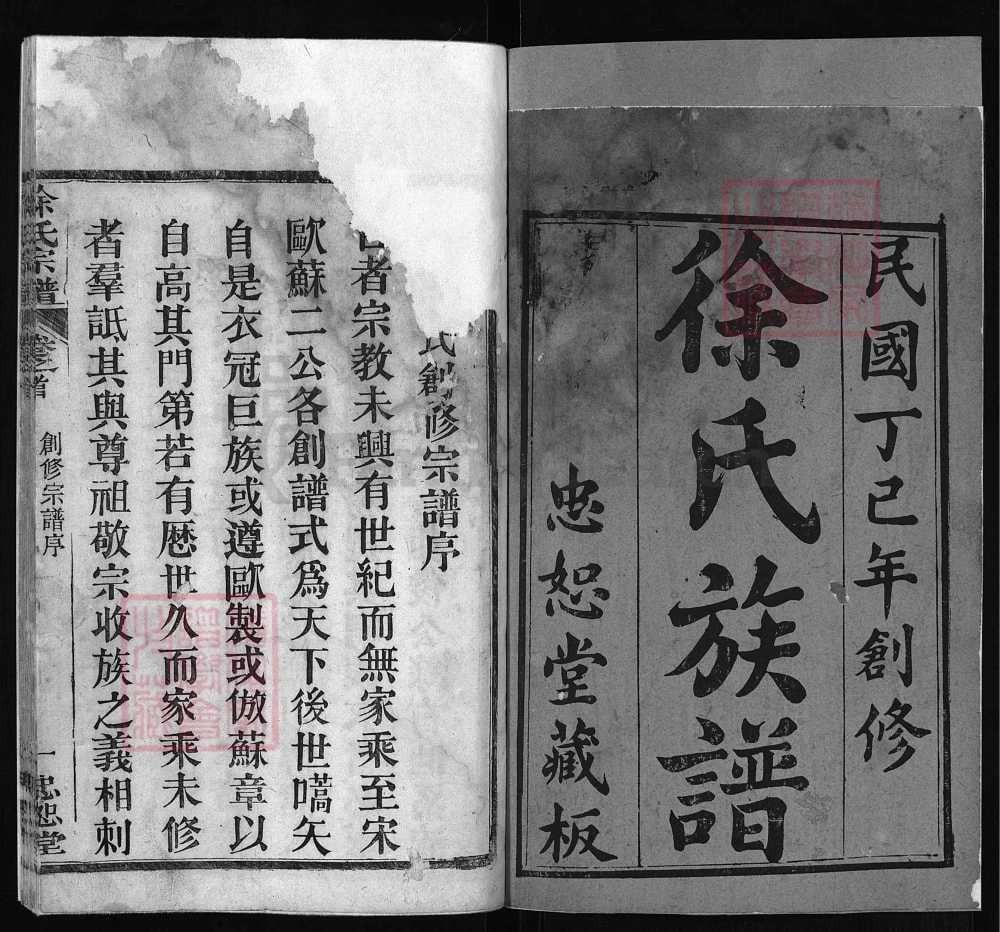 民國丁巳年創修
徐氏族譜
忠恕堂藏板
氏創修宗譜序
者宗教未興有世紀而無家乘至宋
歐蘇二公各創譜式爲天下後世嚆矢
自是衣冠巨族或遵歐製或倣蘇章以
自高其門第若有歷世久而家乘未修
者羣詆其與尊祖敬宗收族之義相刺
徐氏宗譜
卷之首
創修宗譜序
一
忠恕堂